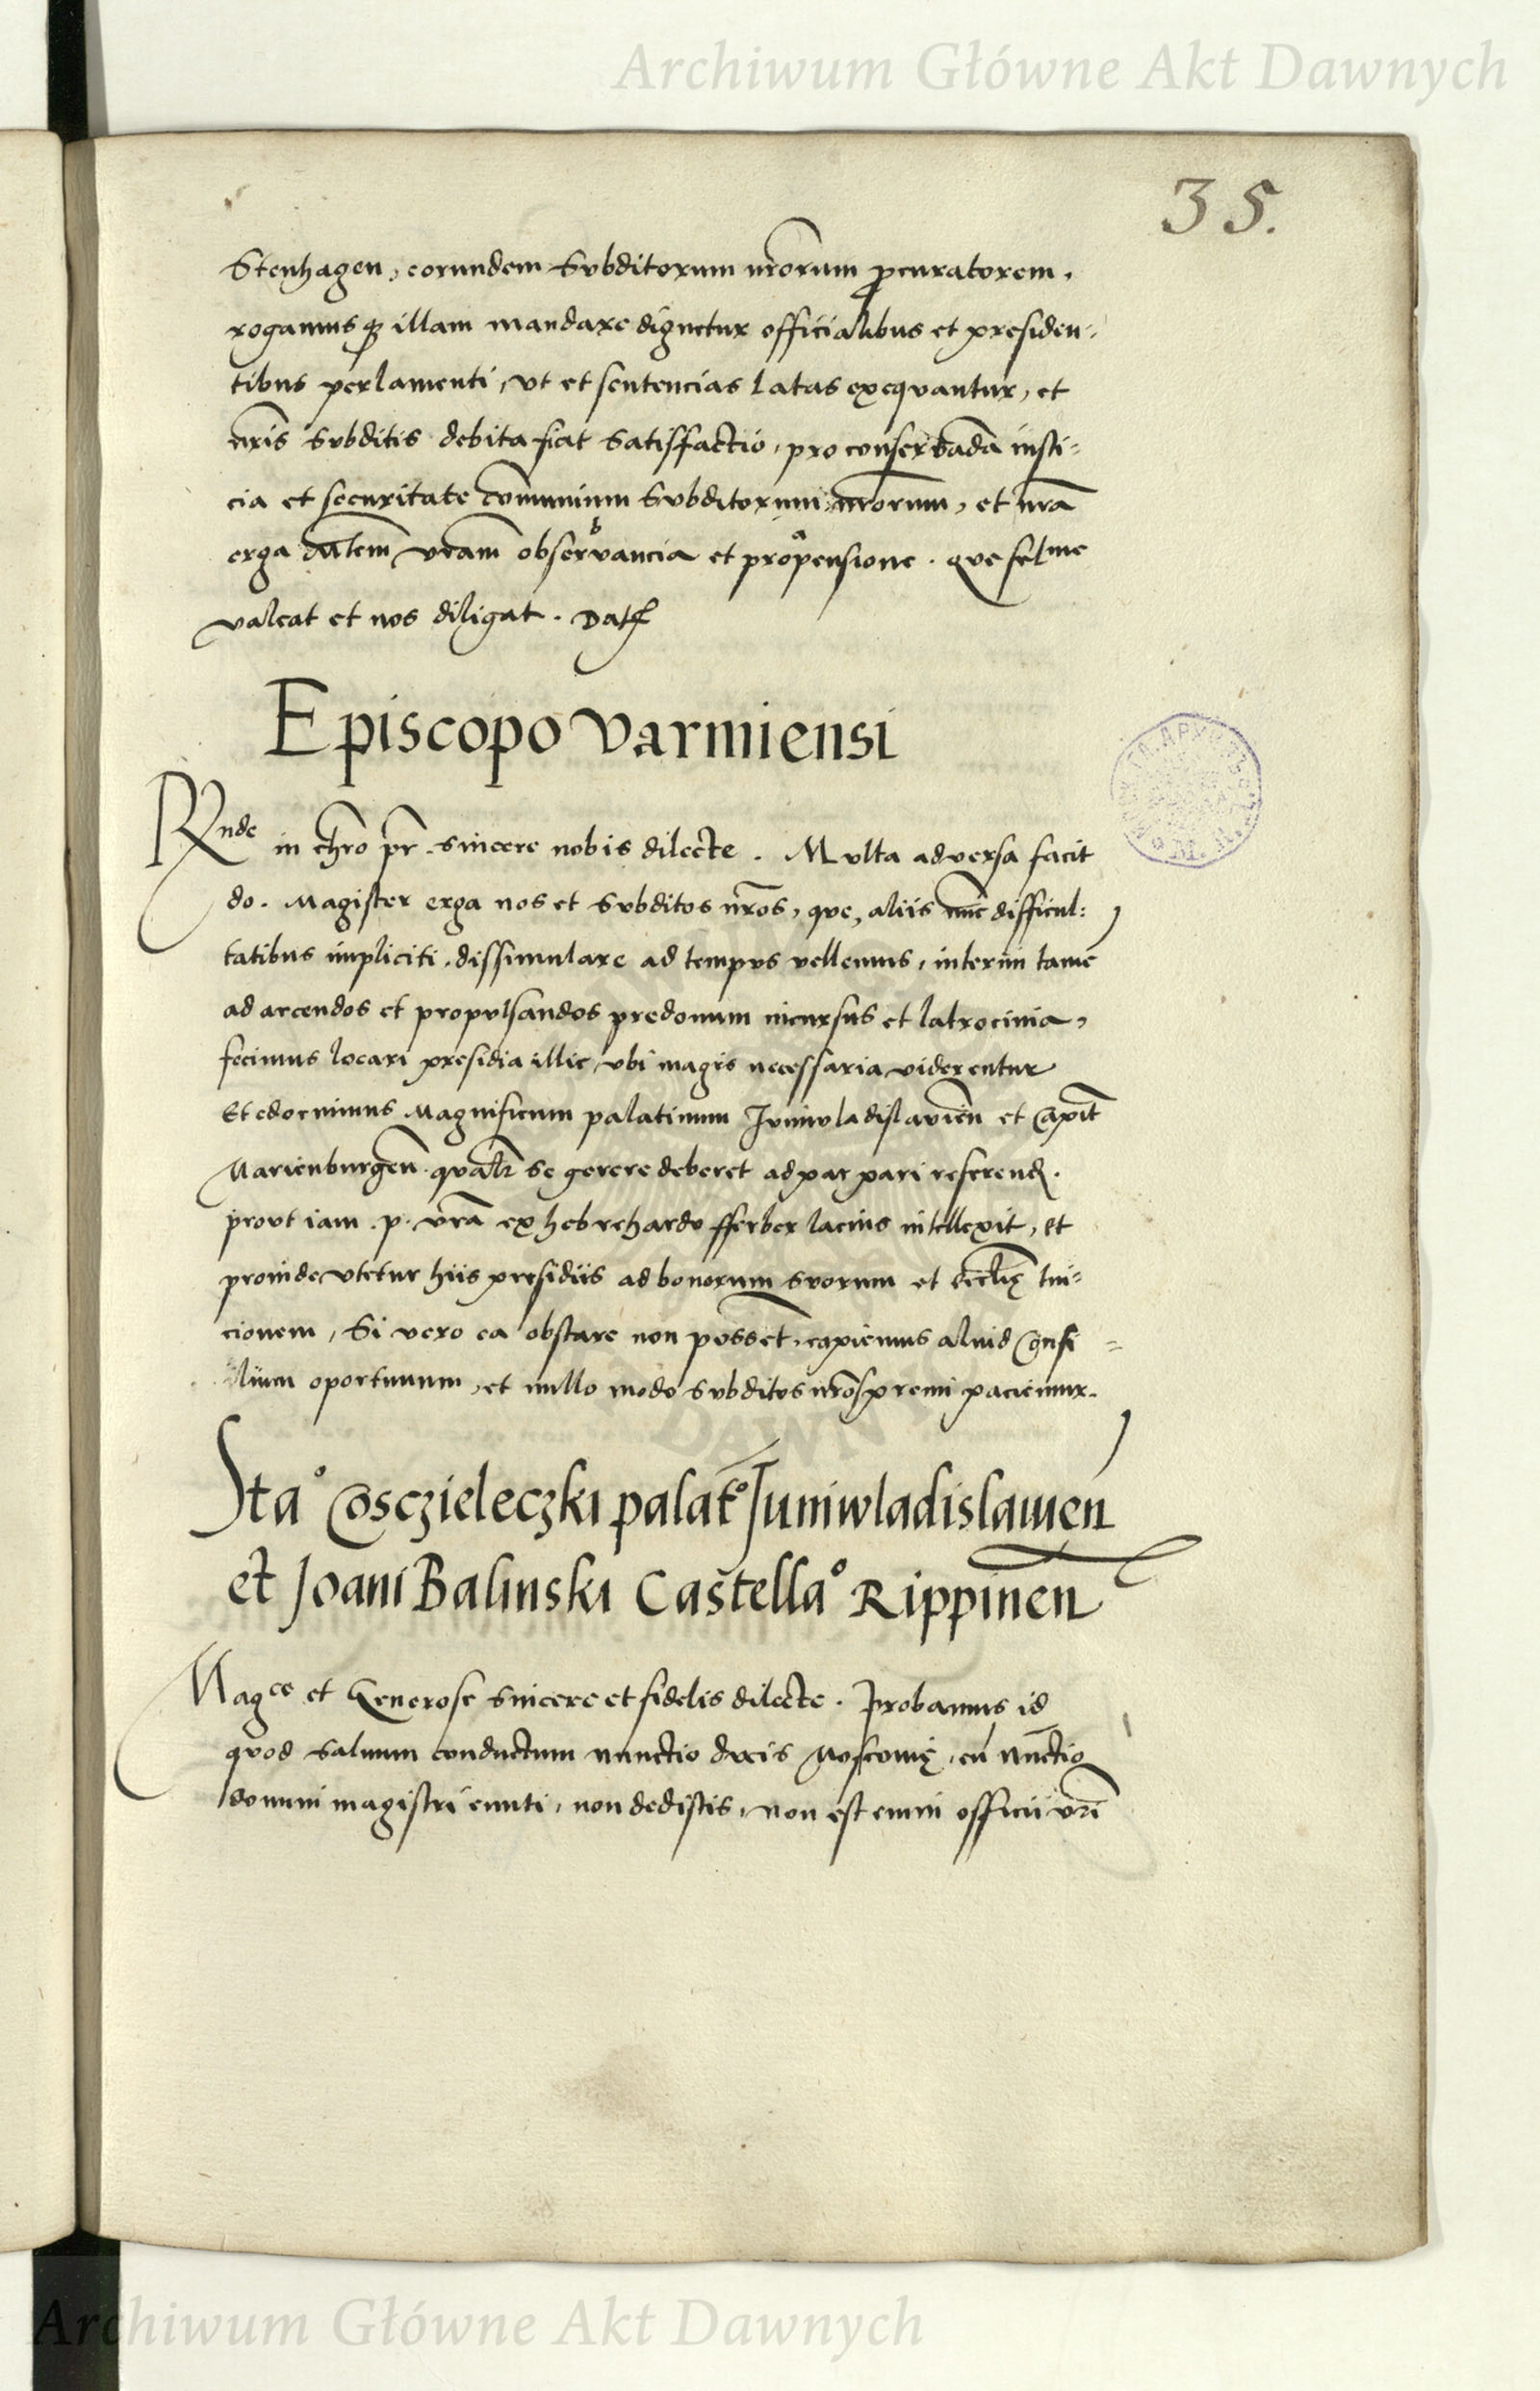 Archiwum Główne Akt Dawnych
35.
Stenhagen, eorundem Subditorum nr̄orum ꝓcuratorem.
rogamus ꝙ illam mandare dignetur officialibus et presiden-
tibus perlamenti, vt et sentencias latas exequantur, et
nr̄is Subditis debita fiat Satisfactio, pro conservāda iusti-
cia et securitate cōmunium Subditorum nr̄orum, et nr̄a
erga vr̄am observancia et propensione. que fel^me
valeat et nos diligat. Dat
Episcopo varmiensi
R^nde in chr̄o pr̄ sincere nobis dilecte. Multa adversa facit
do. Magister erga nos et Subditos nr̄os, que, aliis nūc difficul-
tatibus impliciti, dissimulare ad tempus vellemus, interim tamē
ad arcendos et propulsandos predonum incursus et latrocinia,
fecimus locari presidia illic, vbi magis necessaria viderentur
Et edocuimus Magnificum palatinum Juniuladislavieñ et Capit̄
Marienburgeñ. qual̄r se gerere deberet ad par pari referend.
prout iam .p. vr̄a ex hebrehardo fferber lacius intellexit, et
proinde vtetur hiis presidiis ad bonorum suorum et eccl̄ię tui-
cionem, Si vero ea obstare non possēt, capiemus aliud Consi-
lium oportunum, et nullo modo subditos nr̄os premi paciemur.
Sta° Cosczieleczki palat̄° Juniwladislauień
et Joani Balinski Castella° Rippineñ
Mag^ce et Generose sincere et fidelis dilecte. Probamus id
quod saluum conductum nunctio ducis Moscouię, cū nūctio
domini magistri eunti, non dedistis, non est enim officii vr̄i
Archiwum Główne Akt Dawnych